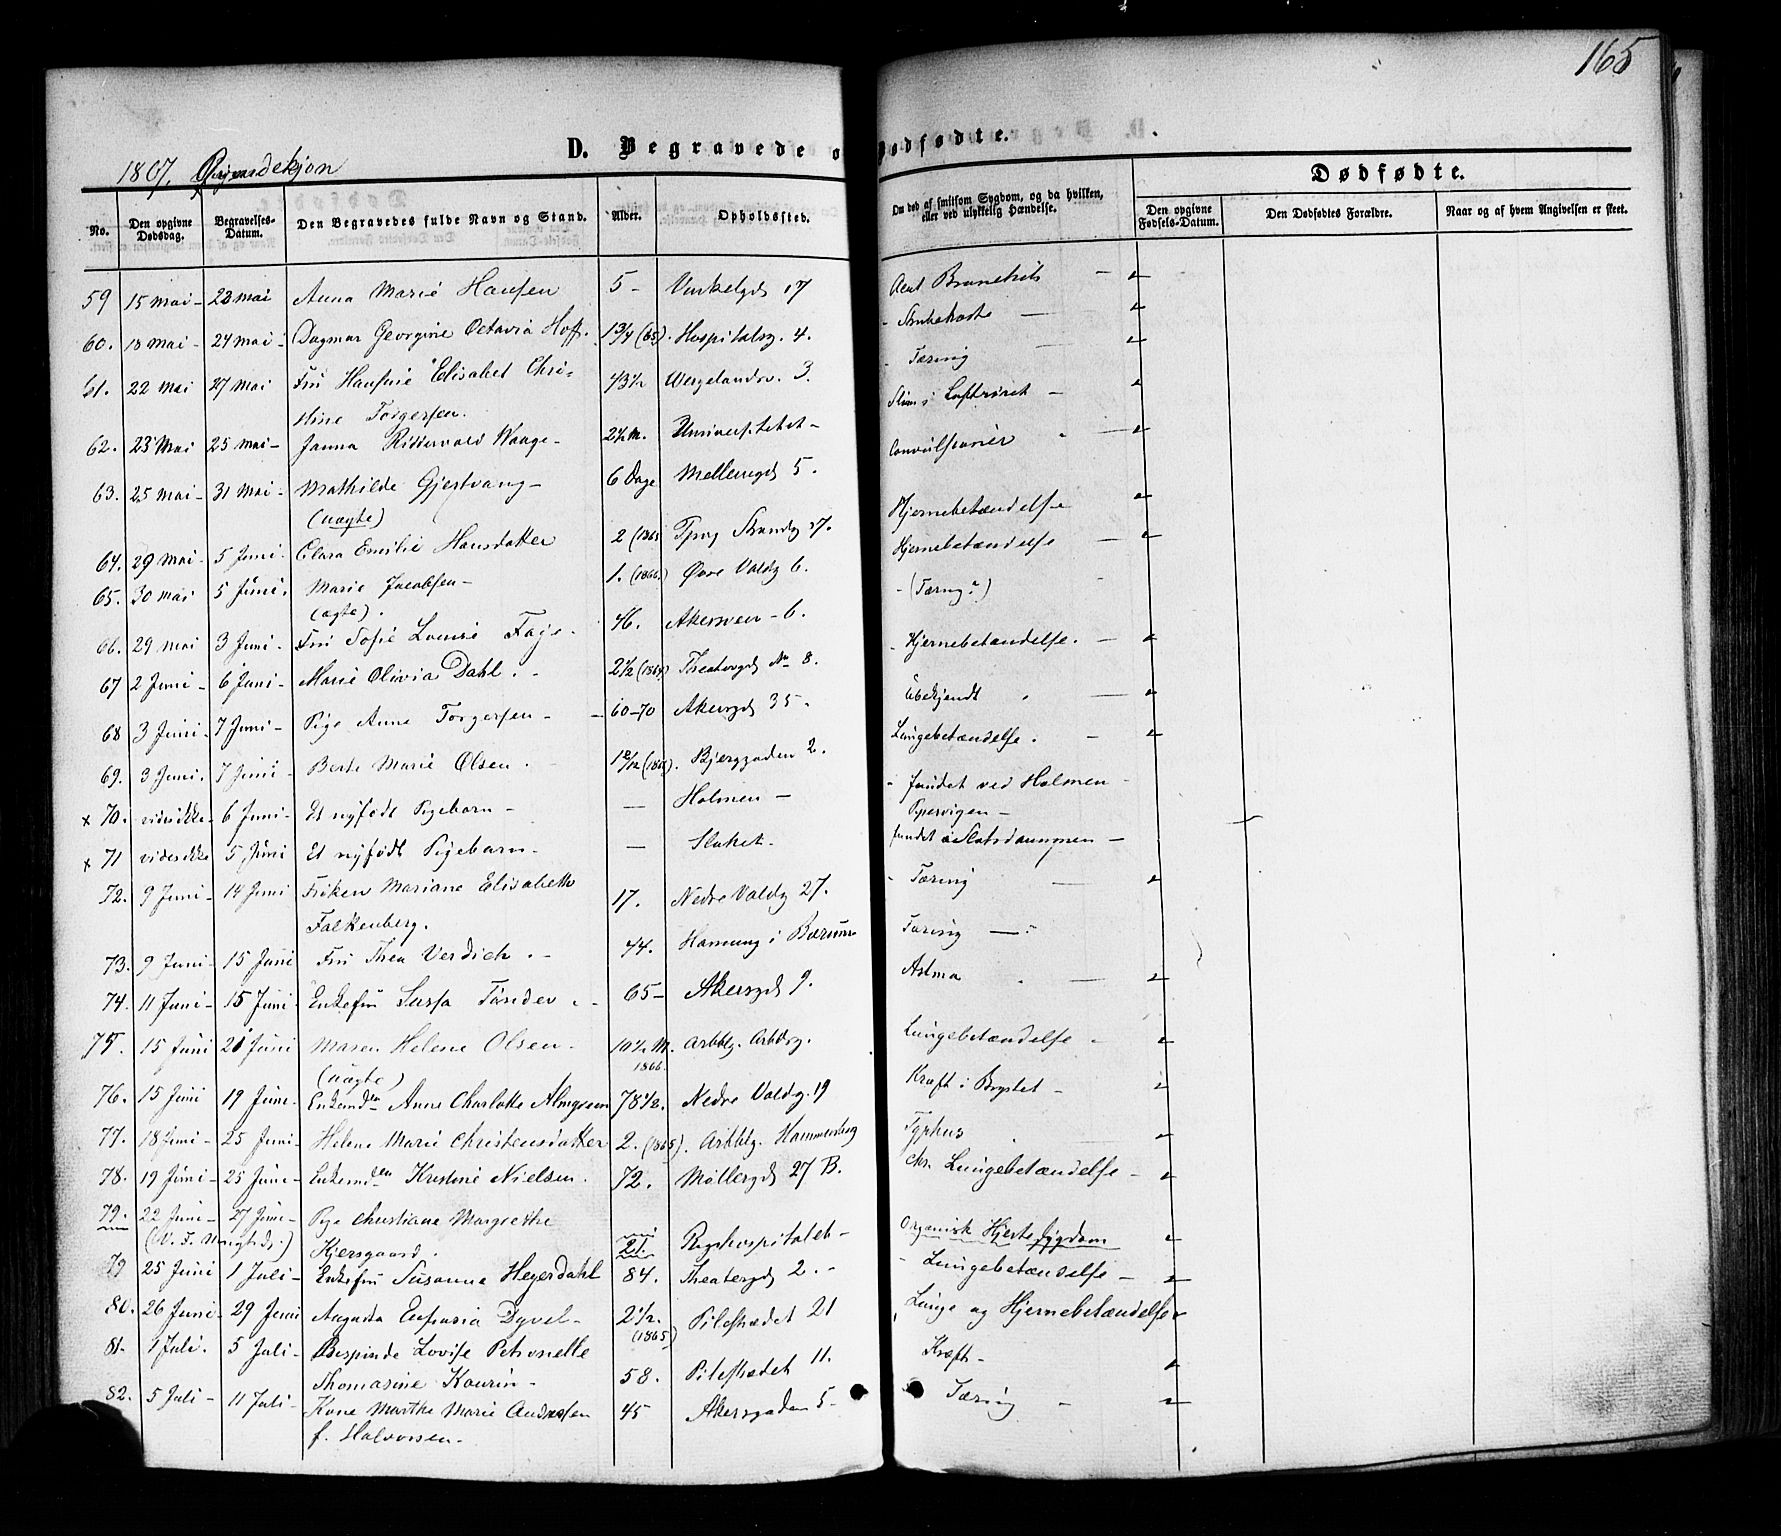 165
D. Begravede o
Dødfødte.
1867. Qvindekjøn
Dødfødte.
No.
Den opgivne Dødsdag.
Begravelses-Datum.
Den Begravedes fulde Navn og Stand.
Alder.
Opholdssted.
Om død af smitsom Sygdom, og da hvilken, eller ved ulykkelig Hændelse.
Den opgivne Fødsels-Datum.
Den Dødfødtes Forældre.
Naar og af hvem Angivelsen er skeet.
59 15 Mai - 23 Mai Anna Marie Hansen 5 - Vinkelgd 17 Acut Bronchit
60. 18 Mai - 24 Mai - Dagmar Georgine Octavia Hoff. 1 3/4 (65). Hospitalsg. 4. Strubehoste
61. 22 Mai 27 Mai Fru Hansine Elisabet Chri- 43 1/2 Wergelandsv. 3. Tæring
stine Torgersen.
62. 23 Mai 25 Mai - Janna Riddervold Waage - 2 1/2 M. Universitetet - Slim i Luftrøret
63. 25 Mai - 31 Mai - Mathilde Gjestvang - 6 Dage Møllergd 5. Convulsioner
(uægte)
64. 29 Mai - 5 Juni. Clara Emilie Hansdatter 2 (1865 Tjuvg Strandg 17. Hjernebetændelse
65. 30 Mai 5 Juni. Marie Jacobsen - 1. (1866.) Øvre Voldg 6. Hjernebetændelse
(ægte).
66. 29 Mai 3 Juni - Fru Sofie Lovise Faye. 46. Akersvei - 6. - (Tæring?)
67 2 Juni - 6 Juni - Marie Olivia Dahl. - 2 1/2 (1864) Theatergd No 8. - Hjernebetændelse.
68 3 Juni - 7 Juni - Pige Anne Torgersen - 60-70 Akersgd 35. Ubekjendt
69. 3 Juni. 7 Juni Berte Marie Olsen. Bjerggaden 2. Lungebetændelse.
x 70. vides ikke - 6 Juni - Et nyfødt Pigebarn - — Holmen - - fundet ved Holmen -
Pipervigen -
x 71 vides ikke 5 Juni Et nyfødt Pigebarn - — Slottet. fundet i Slotsdammen -
72. 9 Juni - 14 Juni Frøken Mariane Elisabeth 17. Nedre Voldg 27. - Tæring
Falkenberg.
73. 9 Juni - 15 Juni Fru Thea Verdich. - 44. Hamung i Bærum Tæring
74. 11 Juni - 15 Juni Enkefru Sussa Tønder. - 65 - Akersgd 9. Astma
75. 15 Juni 21 Juni Maren Helene Olsen. 10 1/2 M. 1866. Arbblg. Arbbg. Lungebetændelse
(uægte)
76. 15 Juni 19 Juni. Enkemden Anne Charlotte Almgreen 78 1/2. Nedre Voldg. 19 Kræft i Brystet -
77. 18 Juni - 25 Juni - Helene Marie Christensdatter 2. (1865). Arbblg. Hammersbg Typhus
78. 19 Juni - 25 Juni - Enkemden Kristine Nielsen. 72. Møllergd 27 B. chr. Lungebetændelse -
79. 22 Juni - 27 Juni - Pige Christiane Margrethe 21. Rigshospitalet - Organisk Hjertesygdom
Kjersgaard.
79 25 Juni 1 Juli - Enkefru Susanna Heyerdahl 84. Theatergd 2. - - Lungebetændelse -
80. 26 Juni - 29 Juni Augusta Eufrasia Dyvel - 2 1/2. (1865) Pilestrædet 21 Lunge og Hjernebetændelse
81. 1 Juli. 5 Juli - Lovise Petronelle 58. Pilestrædet 11. Kræft -
Thomasine Kaurin -
82. 5 Juli - 11 Juli - Kone Marthe Marie Andersen 45 Akersgaden 5 - Tæring -
f. Halvorsen -